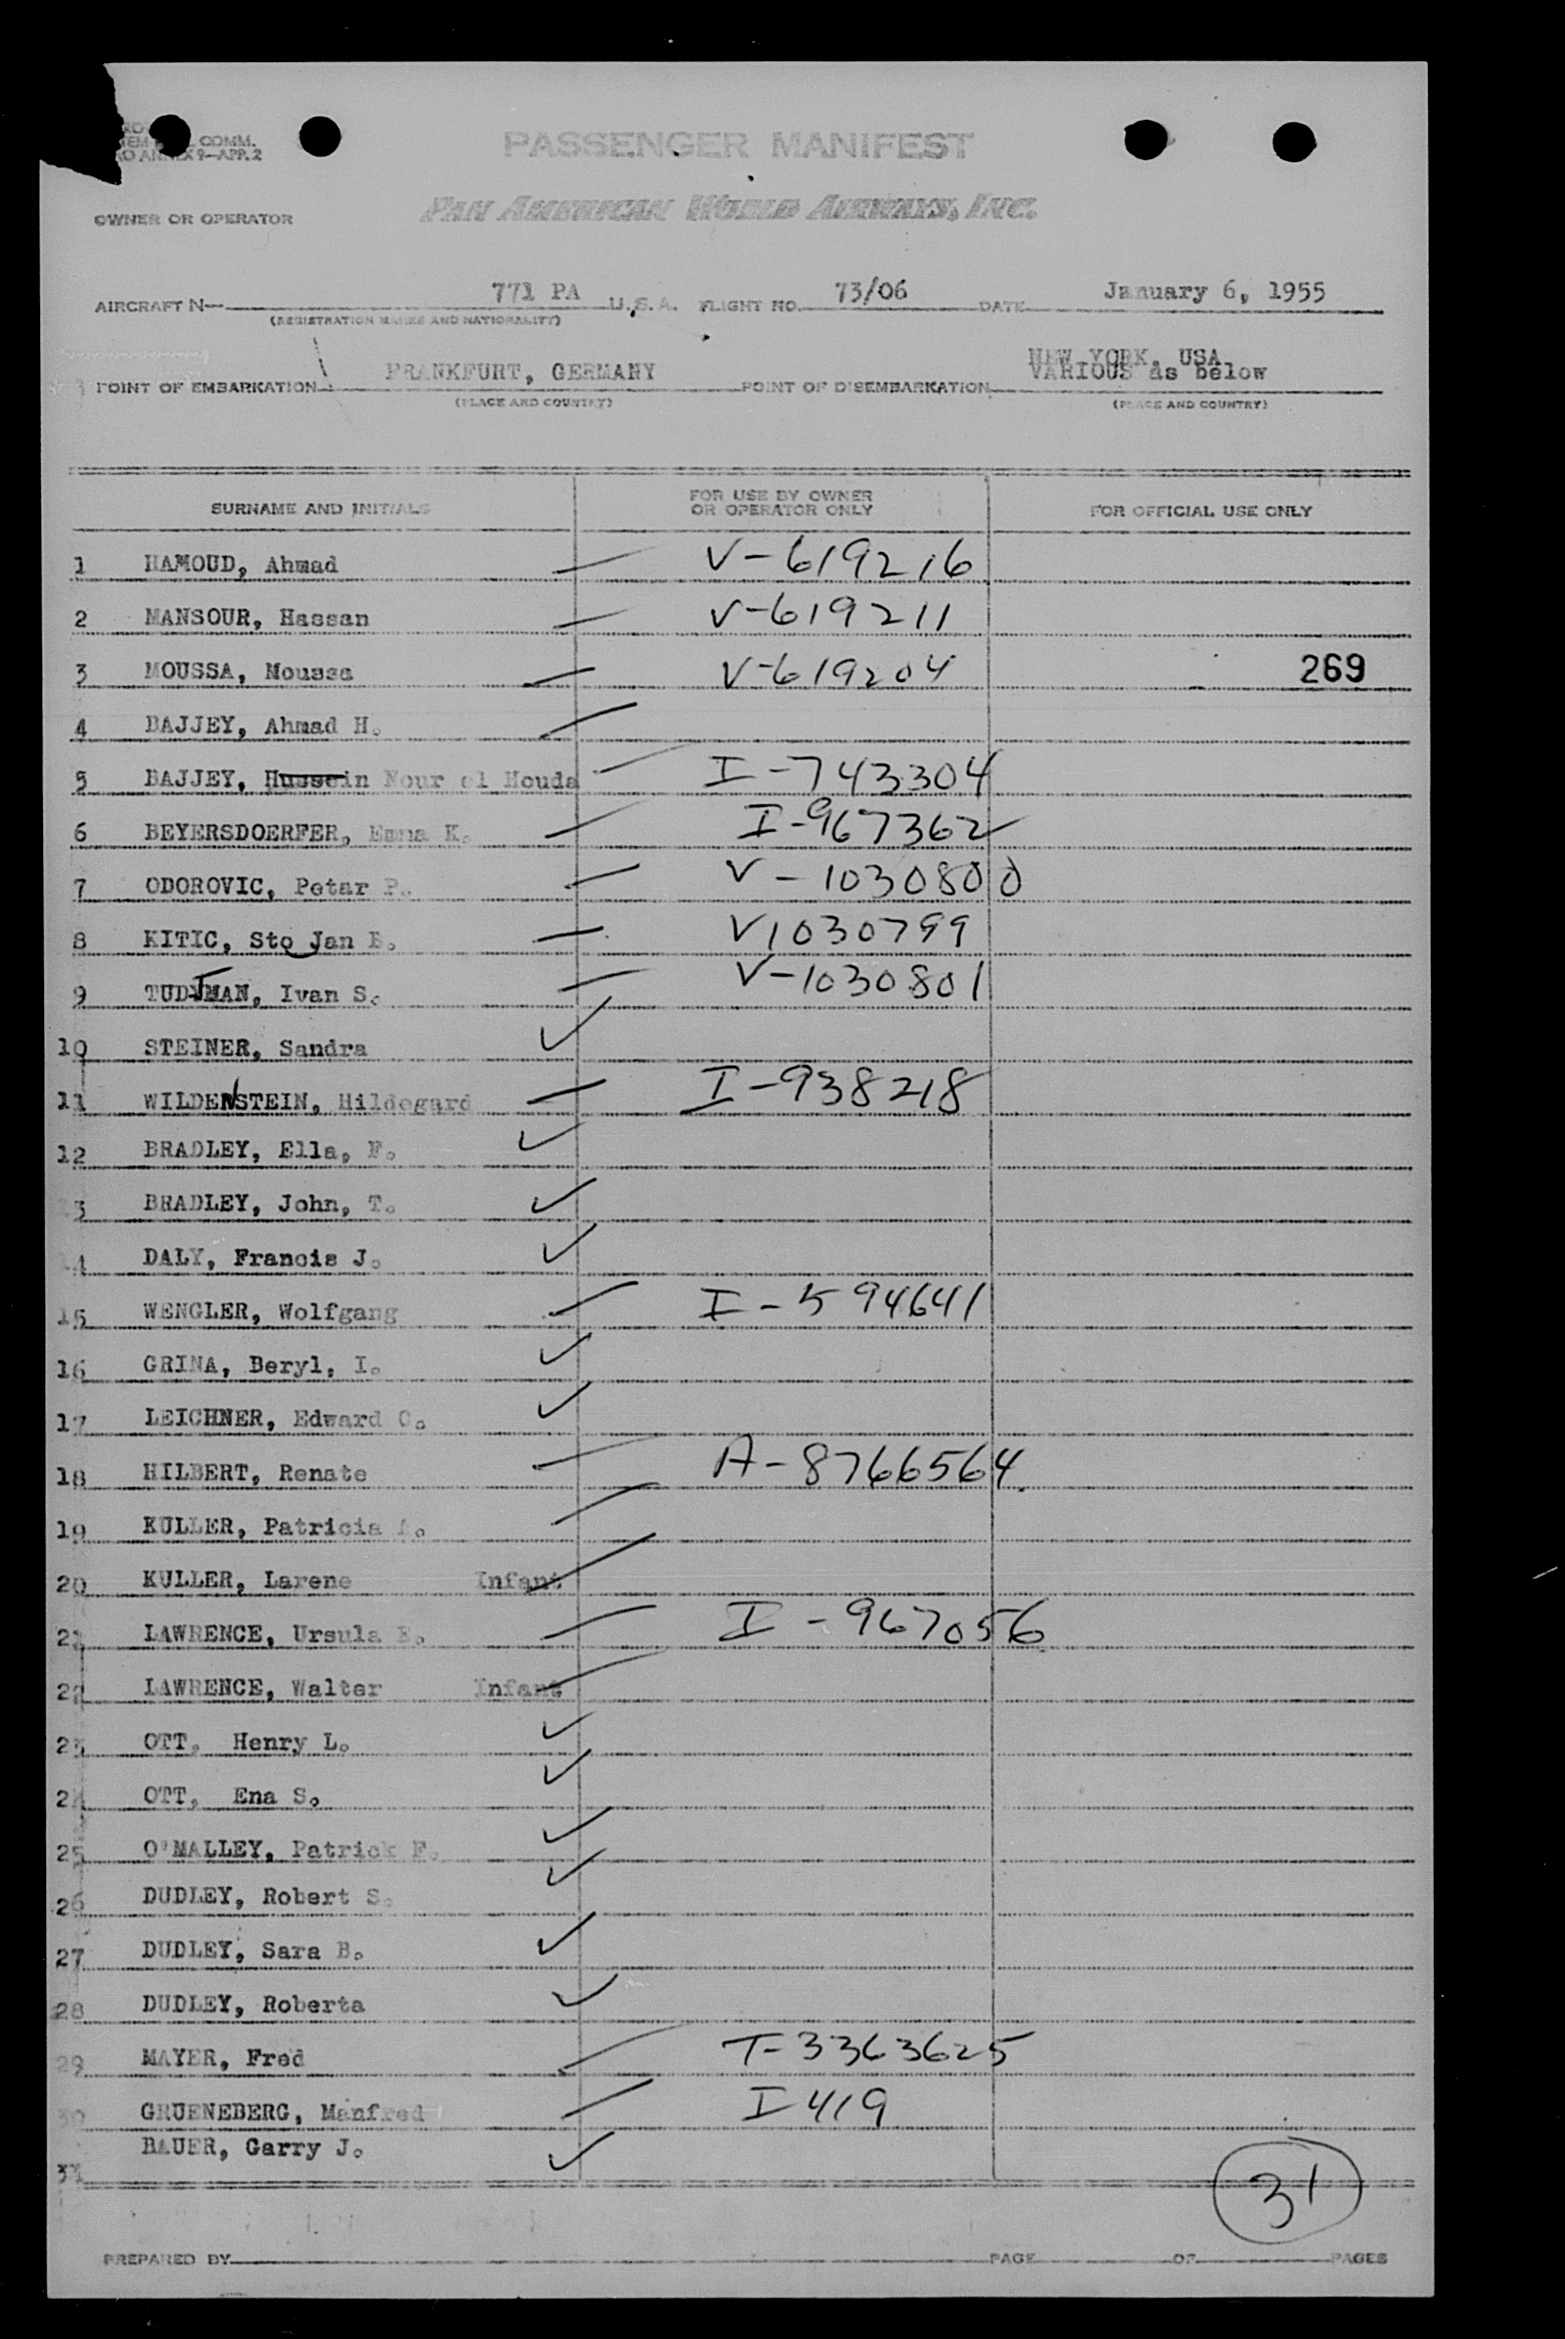 COMM.
9-APP. 2
PASSENGER MANIFEST
OWNER OR OPERATOR PAN AMERICAN WORLD AIRWAYS, INC.
AIRCRAFT N— 771 PA U.S.A. FLIGHT NO. 73/06 DATE January 6, 1955
(REGISTRATION MARKS AND NATIONALITY)
NEW YORK, USA
POINT OF EMBARKATION FRANKFURT, GERMANY POINT OF DISEMBARKATION VARIOUS as below
(PLACE AND COUNTRY) (PLACE AND COUNTRY)
SURNAME AND INITIALS FOR USE BY OWNER OR OPERATOR ONLY FOR OFFICIAL USE ONLY
1 HAMOUD, Ahmad V-619216
2 MANSOUR, Hassan V-619211
3 MOUSSA, Moussa V-619204 269
4 BAJJEY, Ahmad H.
5 BAJJEY, Hussein Nour el Houda I-743304
6 BEYERSDOERFER, Emma K. I-967362
7 ODOROVIC, Petar P. V-1030800
8 KITIC, Sto Jan B. V1030799
9 TUDJMAN, Ivan S. V-1030801
10 STEINER, Sandra
11 WILDENSTEIN, Hildegard I-938218
12 BRADLEY, Ella, F.
3 BRADLEY, John, T.
4 DALY, Francis J.
15 WENGLER, Wolfgang I-594641
16 GRINA, Beryl, I.
17 LEICHNER, Edward C.
18 HILBERT, Renate A-8766564
19 KULLER, Patricia A.
20 KULLER, Larene Infant
21 LAWRENCE, Ursula E. I-967056
22 LAWRENCE, Walter Infant
23 OTT, Henry L.
24 OTT, Ena S.
25 O'MALLEY, Patrick F.
26 DUDLEY, Robert S.
27 DUDLEY, Sara B.
28 DUDLEY, Roberta
29 MAYER, Fred T-3363625
30 GRUENEBERG, Manfred I 419
31 BAUER, Garry J.
31
PREPARED BY PAGE OF PAGES